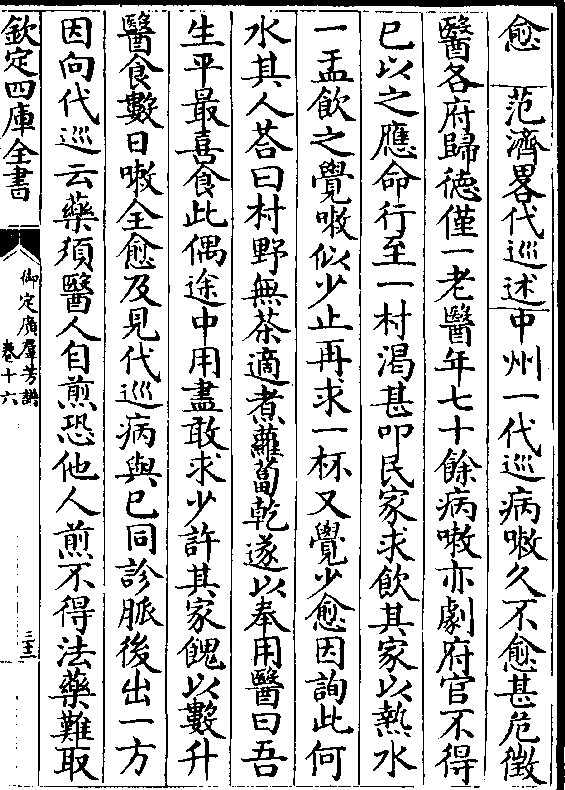 愈 范濟畧代巡述中州一代巡病嗽久不愈甚危徵
醫各府歸德僅一老醫年七十餘病嗽亦劇府官不得
已以之應命行至一村渴甚叩民家求飲其家以熱水
一盂飲之覺嗽似少止再求一杯又覺少愈因詢此何
水其人荅曰村野無茶適煮蘿蔔乾遂以奉用醫曰吾
生平最喜食此偶途中用盡敢求少許其家餽以數升
醫食數日嗽全愈及見代巡病與已同診脈後出一方
因向代巡云藥須醫人自煎恐他人煎不得法藥難取
欽定四庫全書
御定廣羣芳譜
卷十六